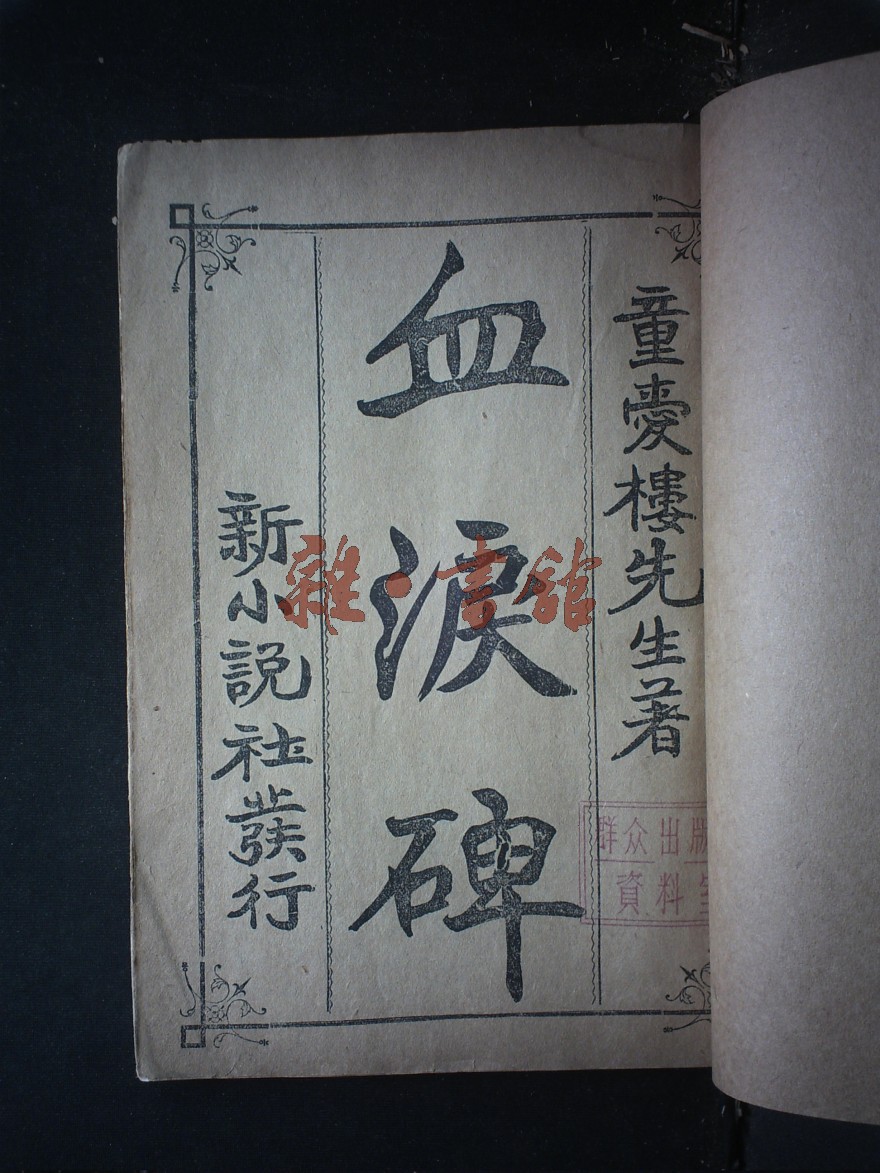 童愛樓先生著
血淚碑
新小說社發行
雜·書館
群众出版
資料